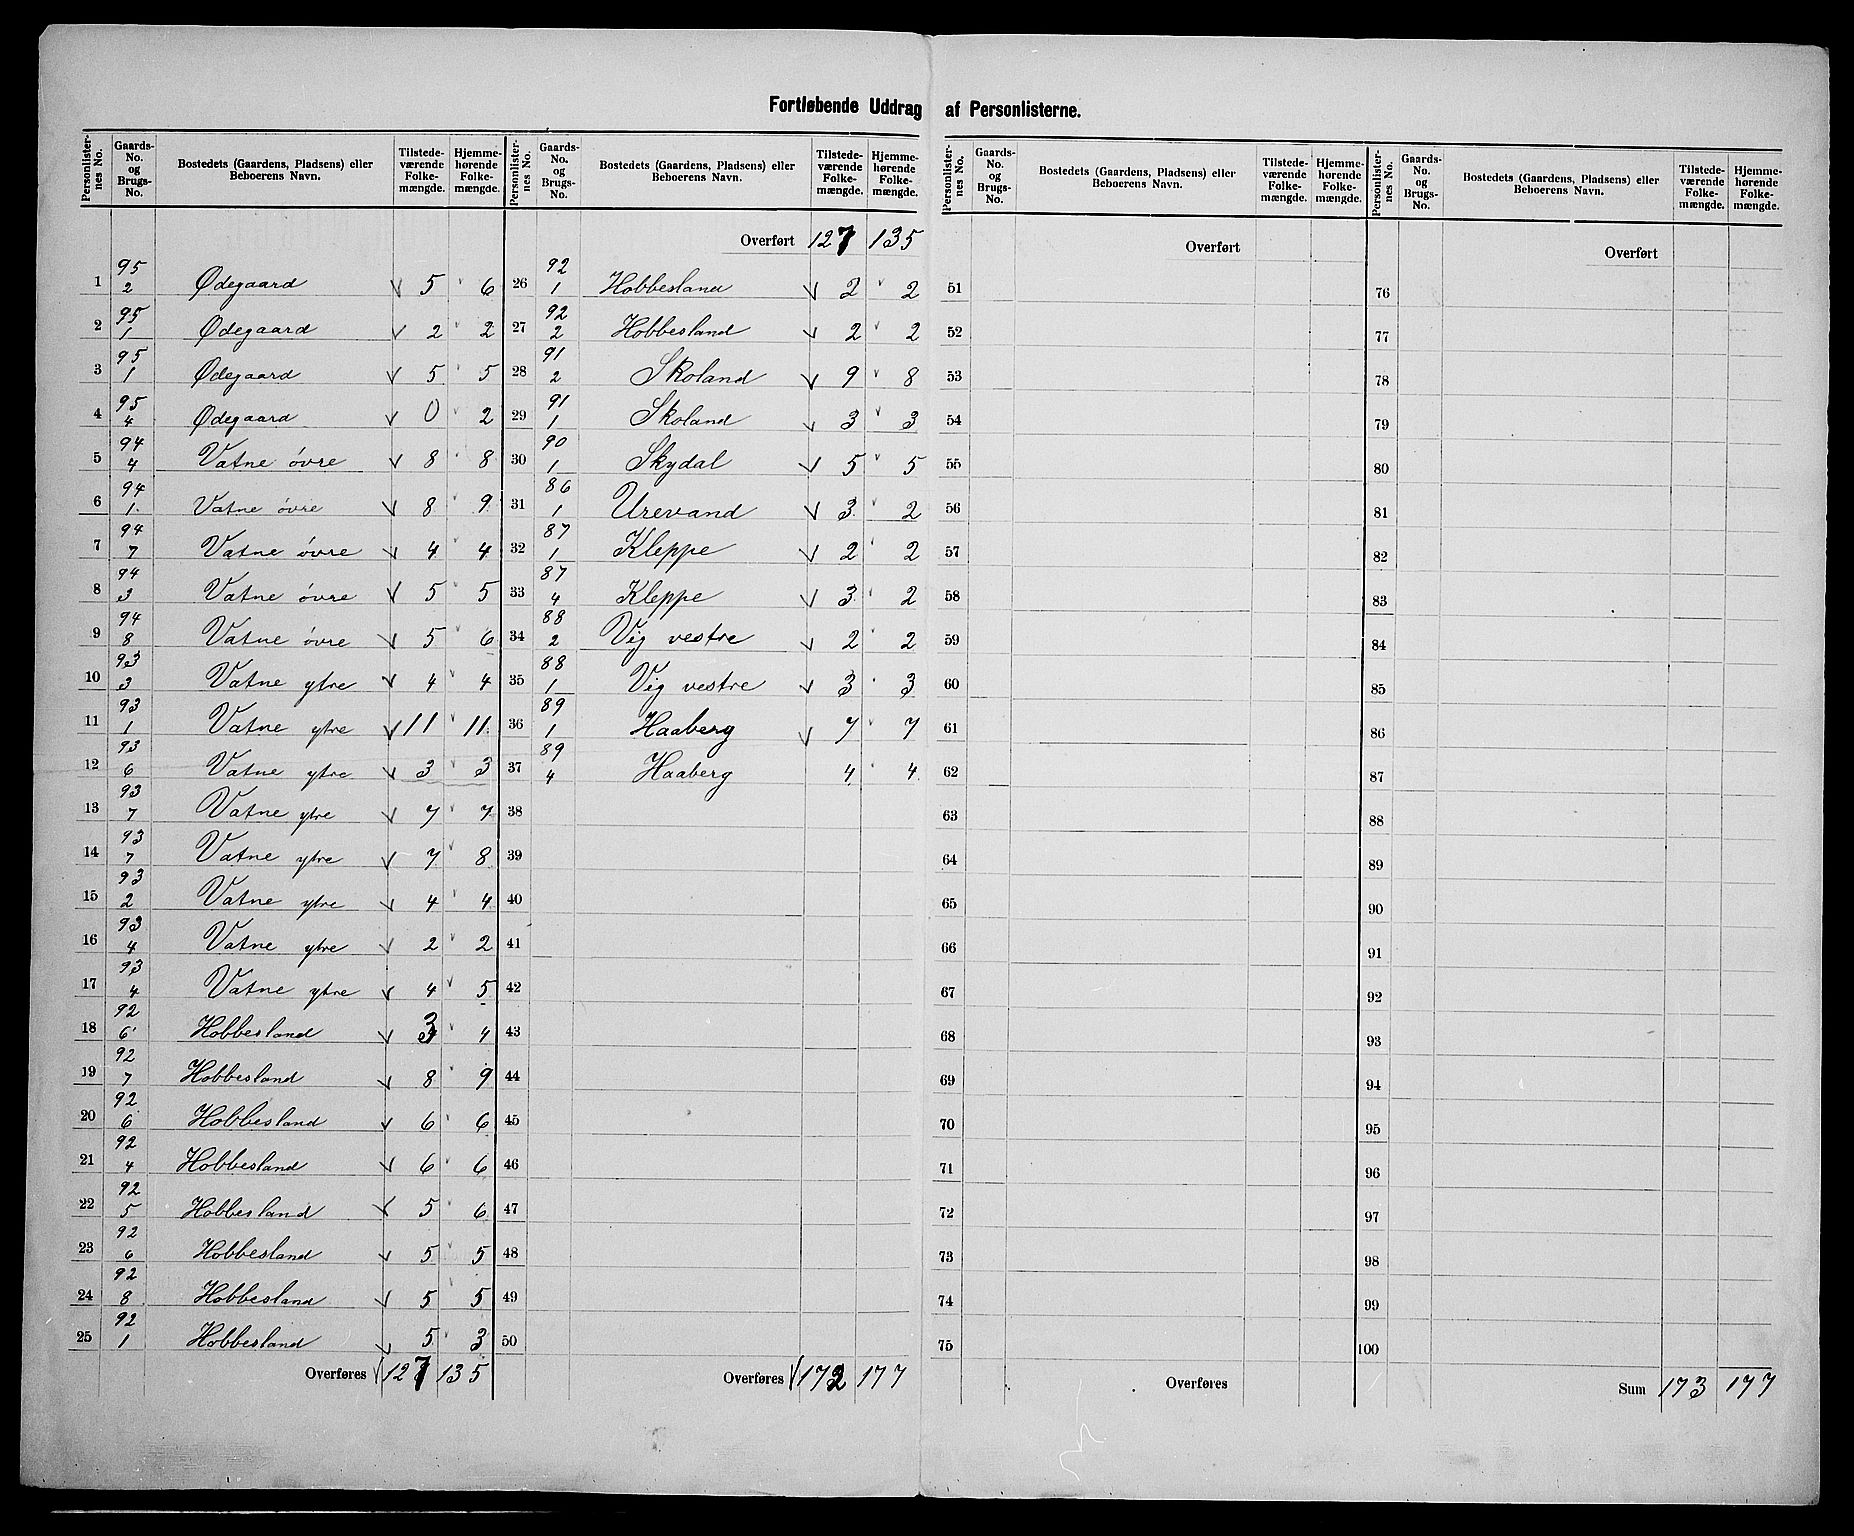 Fortløbende Uddrag af Personlisterne.
Personlister-nes No. | Gaards-No. og Brugs-No. | Bostedets (Gaardens, Pladsens) eller Beboerens Navn. | Tilstede-værende Folke-mængde. | Hjemme-hørende Folke-mængde.
1 | 95 2 | Ødegaard | 5 | 6
2 | 95 1 | Ødegaard | 2 | 2
3 | 95 1 | Ødegaard | 5 | 5
4 | 95 4 | Ødegaard | 0 | 2
5 | 94 4 | Vatne óvre | 8 | 8
6 | 94 1 | Vatne óvre | 8 | 9
7 | 94 7 | Vatne óvre | 4 | 4
8 | 94 3 | Vatne óvre | 5 | 5
9 | 94 8 | Vatne óvre | 5 | 6
10 | 93 3 | Vatne ytre | 4 | 4
11 | 93 1 | Vatne ytre | 11 | 11
12 | 93 6 | Vatne ytre | 3 | 3
13 | 93 7 | Vatne ytre | 7 | 7
14 | 93 7 | Vatne ytre | 7 | 8
15 | 93 2 | Vatne ytre | 4 | 4
16 | 93 4 | Vatne ytre | 2 | 2
17 | 93 4 | Vatne ytre | 4 | 5
18 | 92 6 | Hobbesland | 3 | 4
19 | 92 7 | Hobbesland | 8 | 9
20 | 92 6 | Hobbesland | 6 | 6
21 | 92 4 | Hobbesland | 6 | 6
22 | 92 5 | Hobbesland | 5 | 6
23 | 92 6 | Hobbesland | 5 | 5
24 | 92 8 | Hobbesland | 5 | 5
25 | 92 1 | Hobbesland | 5 | 3
Overføres 127 135
Personlister-nes No. | Gaards-No. og Brugs-No. | Bostedets (Gaardens, Pladsens) eller Beboerens Navn. | Tilstede-værende Folke-mængde. | Hjemme-hørende Folke-mængde.
Overført 127 135
26 | 92 1 | Hobbesland | 2 | 2
27 | 92 2 | Hobbesland | 2 | 2
28 | 91 2 | Skoland | 9 | 8
29 | 91 1 | Skoland | 3 | 3
30 | 90 1 | Skydal | 5 | 5
31 | 86 1 | Urevand | 3 | 2
32 | 87 1 | Kleppe | 2 | 2
33 | 87 4 | Kleppe | 3 | 2
34 | 88 2 | Vig vestre | 2 | 2
35 | 88 1 | Vig vestre | 3 | 3
36 | 89 1 | Haaberg | 7 | 7
37 | 89 4 | Haaberg | 4 | 4
38
39
40
41
42
43
44
45
46
47
48
49
50
Overføres 172 177
Personlister-nes No. | Gaards-No. og Brugs-No. | Bostedets (Gaardens, Pladsens) eller Beboerens Navn. | Tilstede-værende Folke-mængde. | Hjemme-hørende Folke-mængde.
Overført
51
52
53
54
55
56
57
58
59
60
61
62
63
64
65
66
67
68
69
70
71
72
73
74
75
Overføres
Personlister-nes No. | Gaards-No. og Brugs-No. | Bostedets (Gaardens, Pladsens) eller Beboerens Navn. | Tilstede-værende Folke-mængde. | Hjemme-hørende Folke-mængde.
Overført
76
77
78
79
80
81
82
83
84
85
86
87
88
89
90
91
92
93
94
95
96
97
98
99
100
Sum 173 177